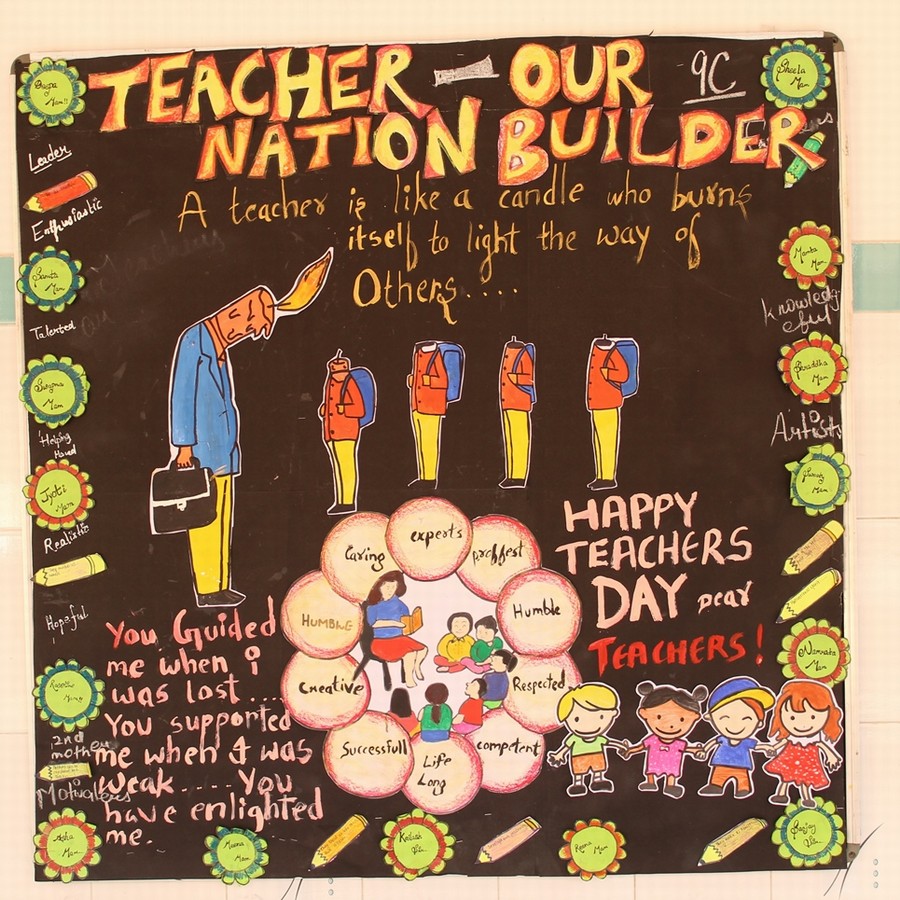 TEACHER - OUR
9C
NATION BUILDER
A teacher is like a candle who burns
itself to light the way of
Others....
Sheela
Mam
Leader
Enthusiastic
Sarita
Mam
Talented
Mam
Helping
Hand
Jyoti
Mam
Realistic
Hopeful
2nd
mother
Motivators
Asha
Mam
Mamta
Mam
Knowledg
eful
Shraddha
Mam
Artists
Mam
Namrata
Mam
Sanjay
Sir
HAPPY
TEACHERS
DAY Dear
TEACHERS!
experts
Caring
HUMBLE
Humble
Creative
Respected
Successfull
competent
Life
Long
You Guided
me when i
was lost....
You supported
me when I was
weak..... You
have enlighted
me.
Meena
Mam
Kailash
Sir
Reena
Mam